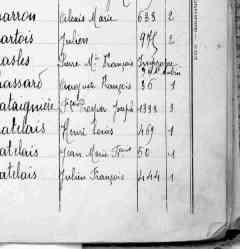 arron Marie 633 2
artois Julien 975 2
asles Pierre Mie François
assard Jacques François 36 1
ataignière Prosper Joseph 1398 3
atelais Henri Louis 469 1
atelais Jean Marie Fcois 50 1
atelais Julien François 444 1